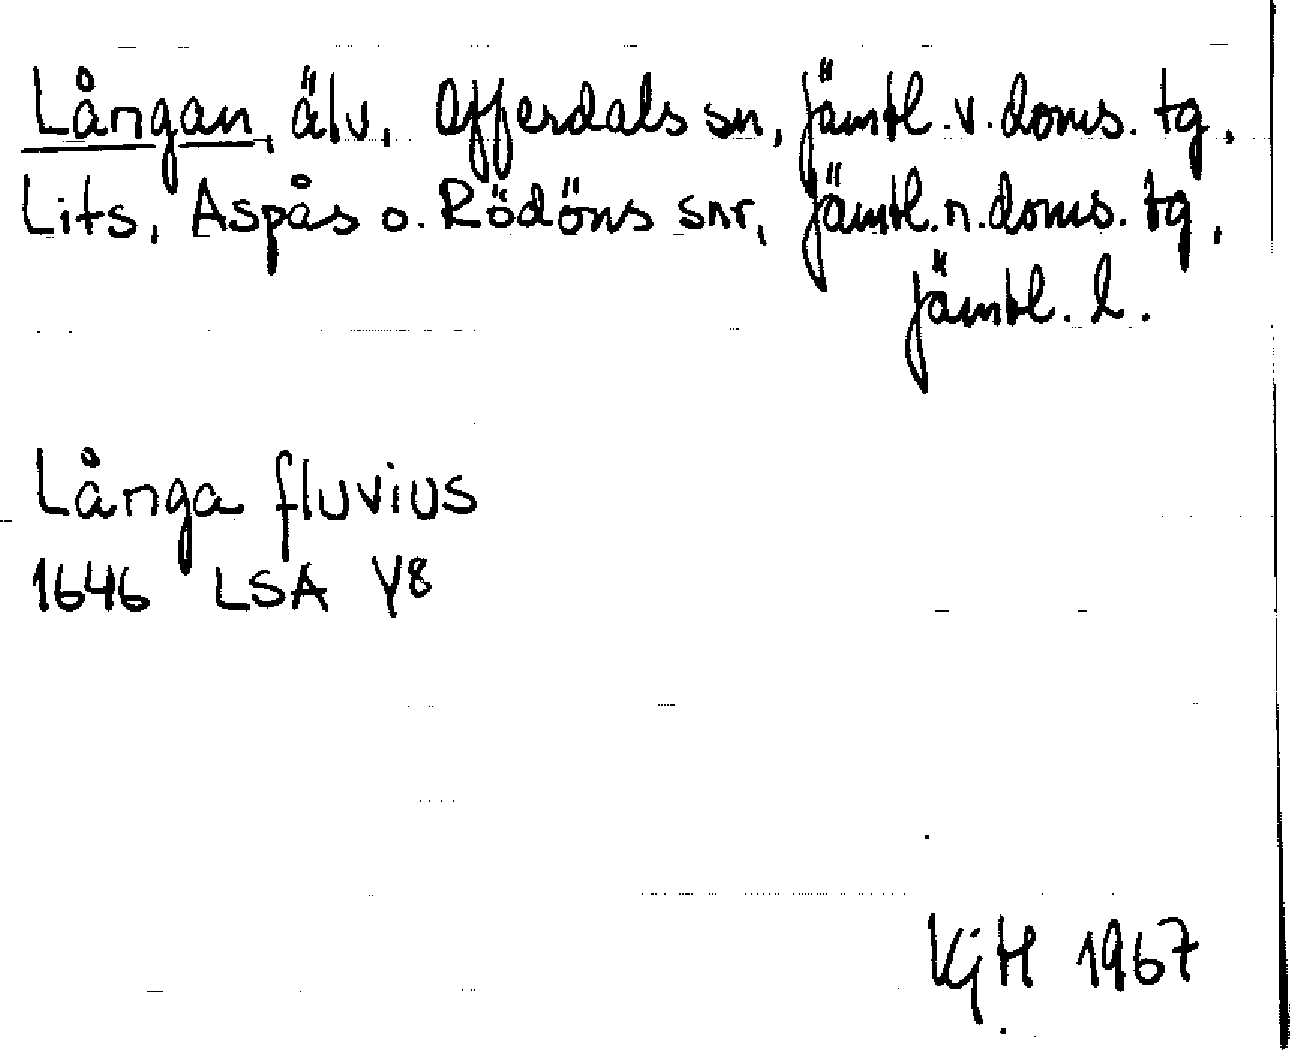 Långan, älv, Offerdals sn, Jämtl. v. doms. tg,
Lits, Aspås o. Rödöns snr, Jämtl. n. doms. tg,
Jämtl. l.
Långa fluvius
1646 LSA Y8
KjH 1967